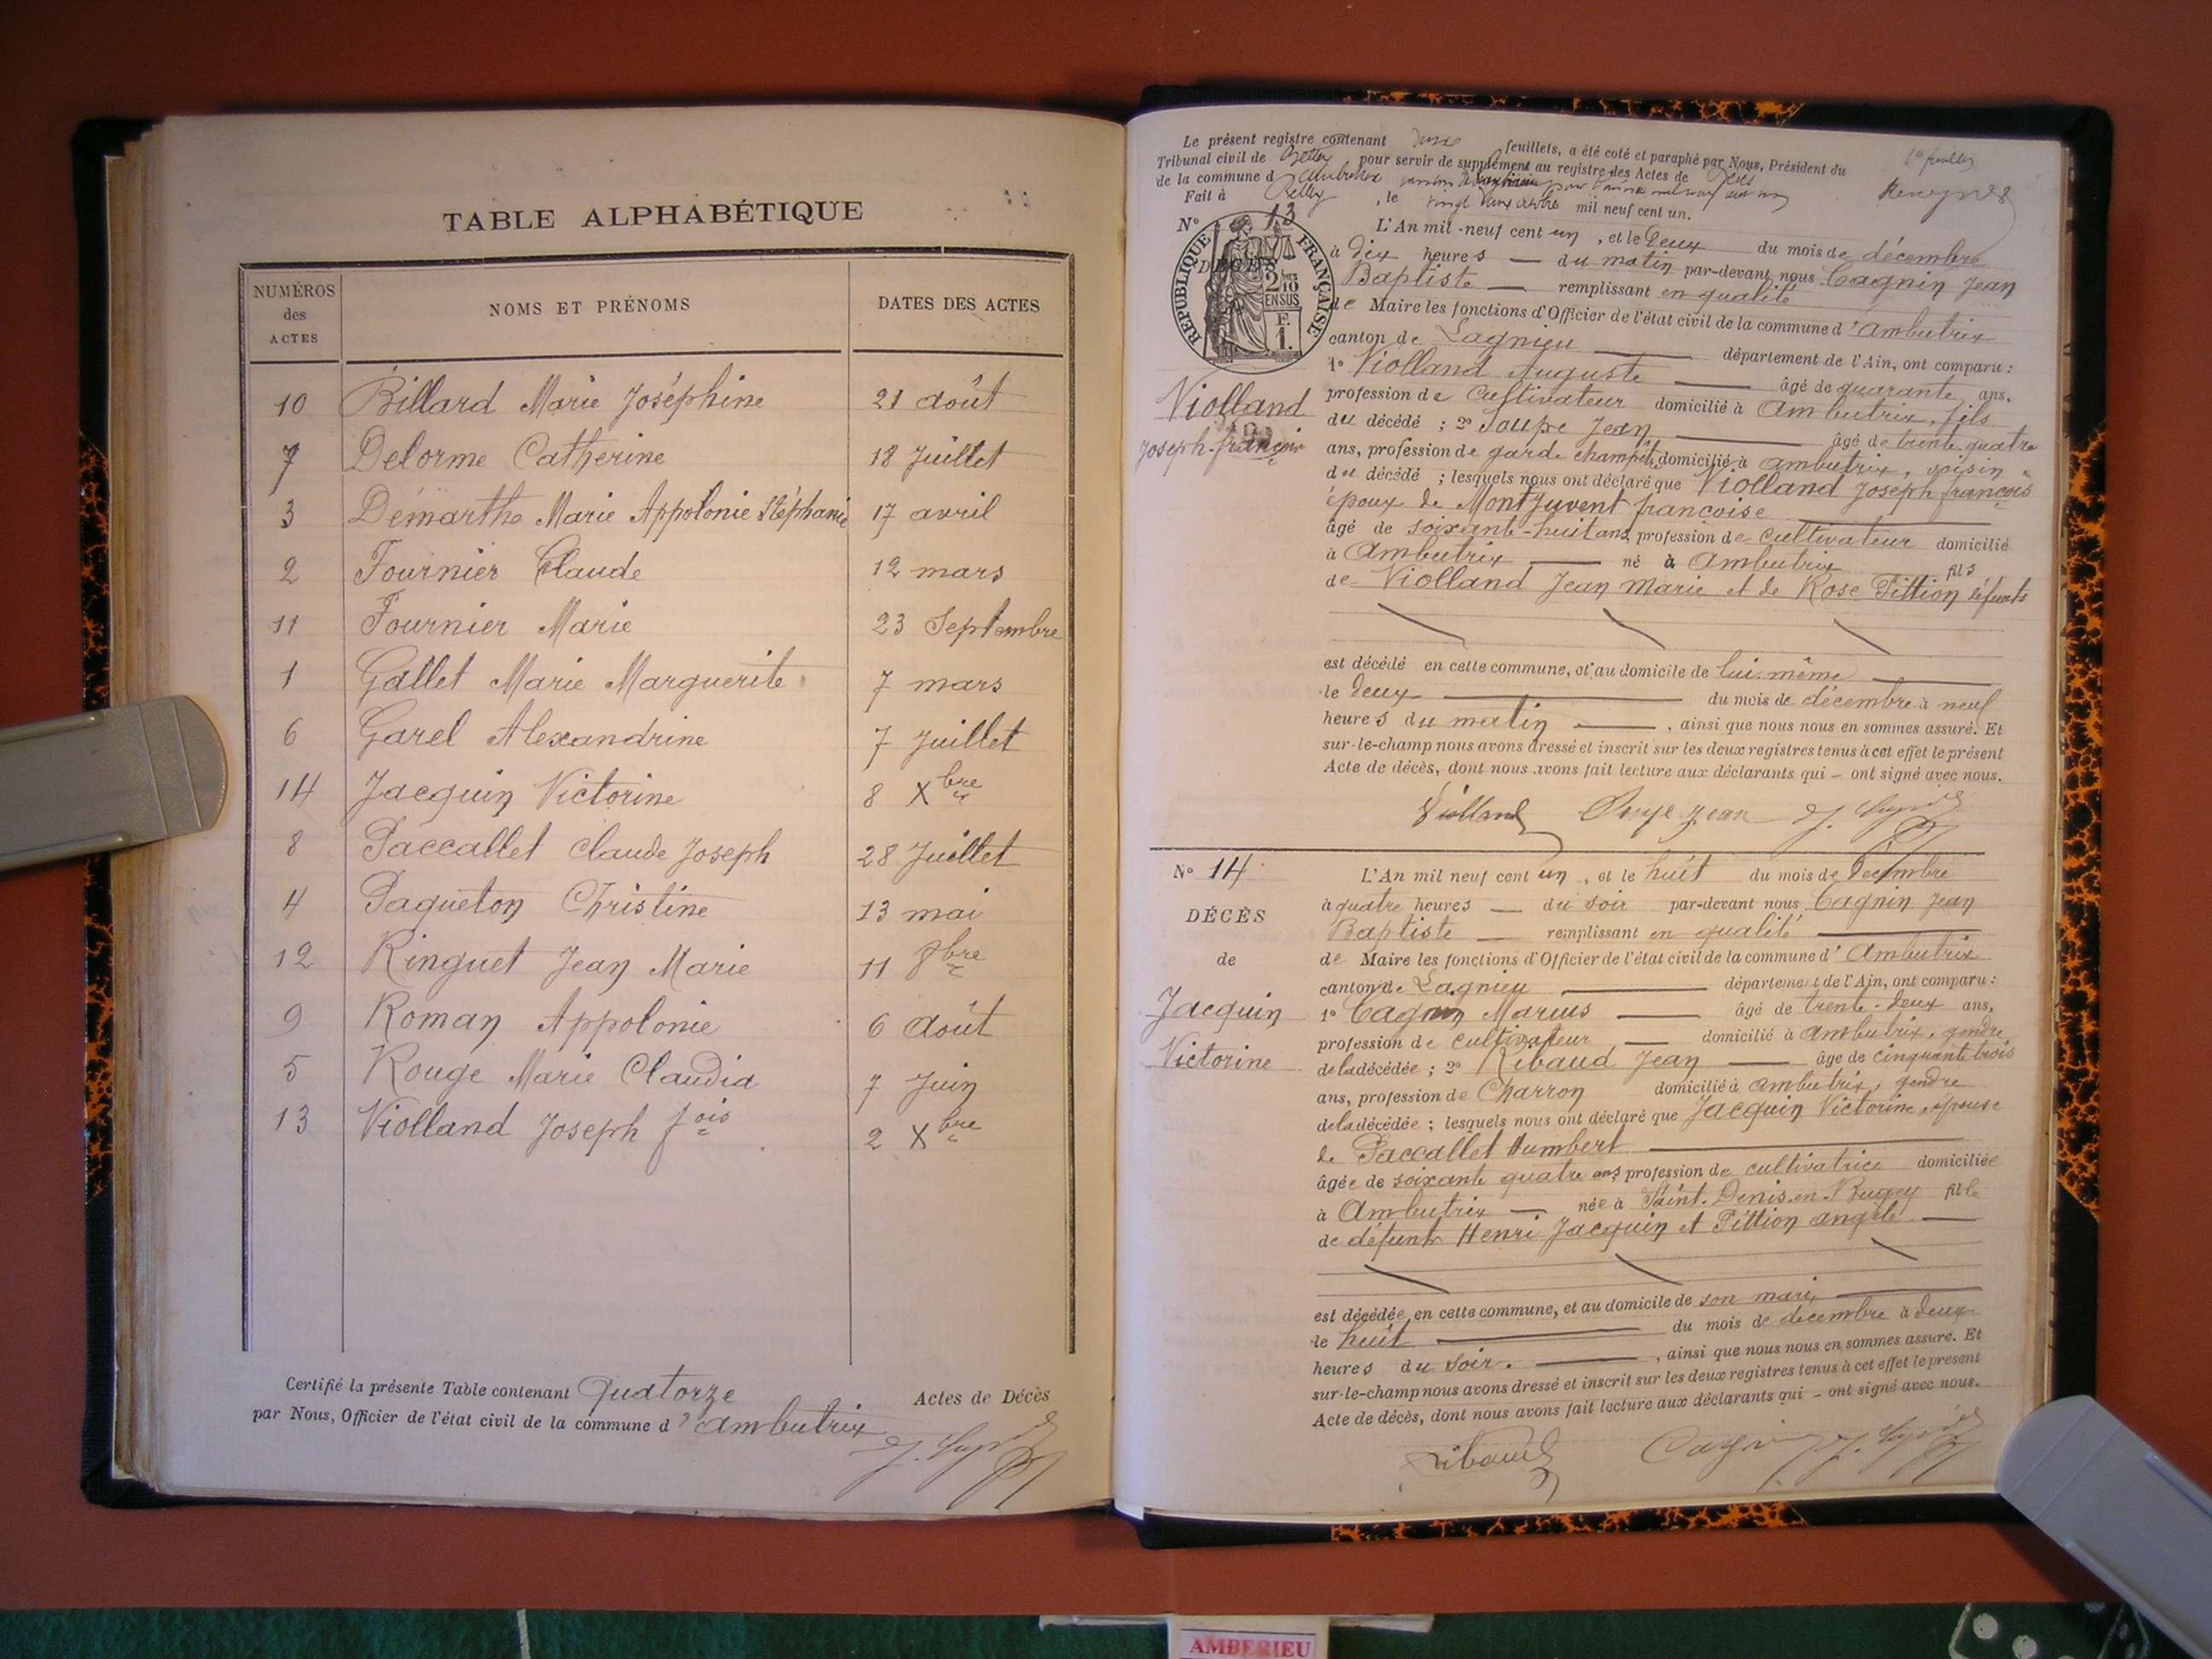 TABLE ALPHABÉTIQUE
NUMÉROS des ACTES
NOMS ET PRÉNOMS
DATES DES ACTES
10 Billard Marie Joséphine 21 août
7 Delorme Catherine 18 Juillet
3 Démarthe Marie Appolonie Stéphanie 17 avril
2 Fournier Claude 12 mars
11 Fournier Marie 23 Septembre
1 Gallet Marie Marguerite 7 mars
6 Garel Alexandrine 7 Juillet
14 Jacquin Victorine 8 Xbre
8 Paccallet Claude Joseph 28 Juillet
4 Paqueton Christine 13 mai
12 Ringuet Jean Marie 11 8bre
9 Roman Appolonie 6 Août
5 Rouge Marie Claudia 7 Juin
13 Violland Joseph fois 2 Xbre
Certifié la présente Table contenant Quatorze Actes de Décès
par Nous, Officier de l'état civil de la commune d'Ambutrix
Le présent registre contenant feuillets, a été coté et paraphé par Nous, Président du
Tribunal civil de Belley, pour servir de supplément au registre des Actes de Décès
de la commune d'Ambutrix
Fait à Belley, le vingt mil neuf cent un.
N° 13
RÉPUBLIQUE FRANÇAISE
DÉCÈS
2/10 EN SUS
F. 1.
Violland
Joseph-françois
L'An mil-neuf cent un, et le Deux du mois de décembre
à Dix heures du matin par-devant nous Cagnin Jean
Baptiste remplissant en qualité
de Maire les fonctions d'Officier de l'état civil de la commune d'Ambutrix
canton de Lagnieu département de l'Ain, ont comparu :
1° Violland Auguste âgé de quarante ans,
profession de Cultivateur domicilié à Ambutrix, fils
du décédé ; 2° Jean âgé de trente-quatre
ans, profession de garde champêtre domicilié à Ambutrix, voisin
du décédé ; lesquels nous ont déclaré que Violland Joseph françois
époux de Montjuvent françoise
âgé de soixante-huit ans, profession de Cultivateur domicilié
à Ambutrix né à Ambutrix fils
de Violland Jean Marie et de Rose Pittion défunts
est décédé en cette commune, et au domicile de lui-même
le deux du mois de décembre à neuf
heures du matin, ainsi que nous nous en sommes assuré. Et
sur-le-champ nous avons dressé et inscrit sur les deux registres tenus à cet effet le présent
Acte de décès, dont nous avons fait lecture aux déclarants qui ont signé avec nous.
Violland
N° 14
DÉCÈS
de
Jacquin
Victorine
L'An mil neuf cent un, et le huit du mois de Décembre
à quatre heures du soir par-devant nous Cagnin Jean
Baptiste remplissant en qualité
de Maire les fonctions d'Officier de l'état civil de la commune d'Ambutrix
canton de Lagnieu département de l'Ain, ont comparu :
1° Cagnin Marius âgé de trente-deux ans,
profession de cultivateur domicilié à Ambutrix, gendre
de la décédée ; 2° Ribaud Jean âgé de cinquante trois
ans, profession de Charron domicilié à Ambutrix, gendre
de la décédée ; lesquels nous ont déclaré que Jacquin Victorine, épouse
de Paccallet Humbert
âgée de soixante quatre ans profession de cultivatrice domiciliée
à Ambutrix née à Saint-Denis-en-Bugey fille
de défunts Henri Jacquin et Pittion angèle
est décédée en cette commune, et au domicile de son mari
le huit du mois de décembre à deux
heures du soir, ainsi que nous nous en sommes assuré. Et
sur-le-champ nous avons dressé et inscrit sur les deux registres tenus à cet effet le présent
Acte de décès, dont nous avons fait lecture aux déclarants qui ont signé avec nous.
Ribaud
AMBERIEU